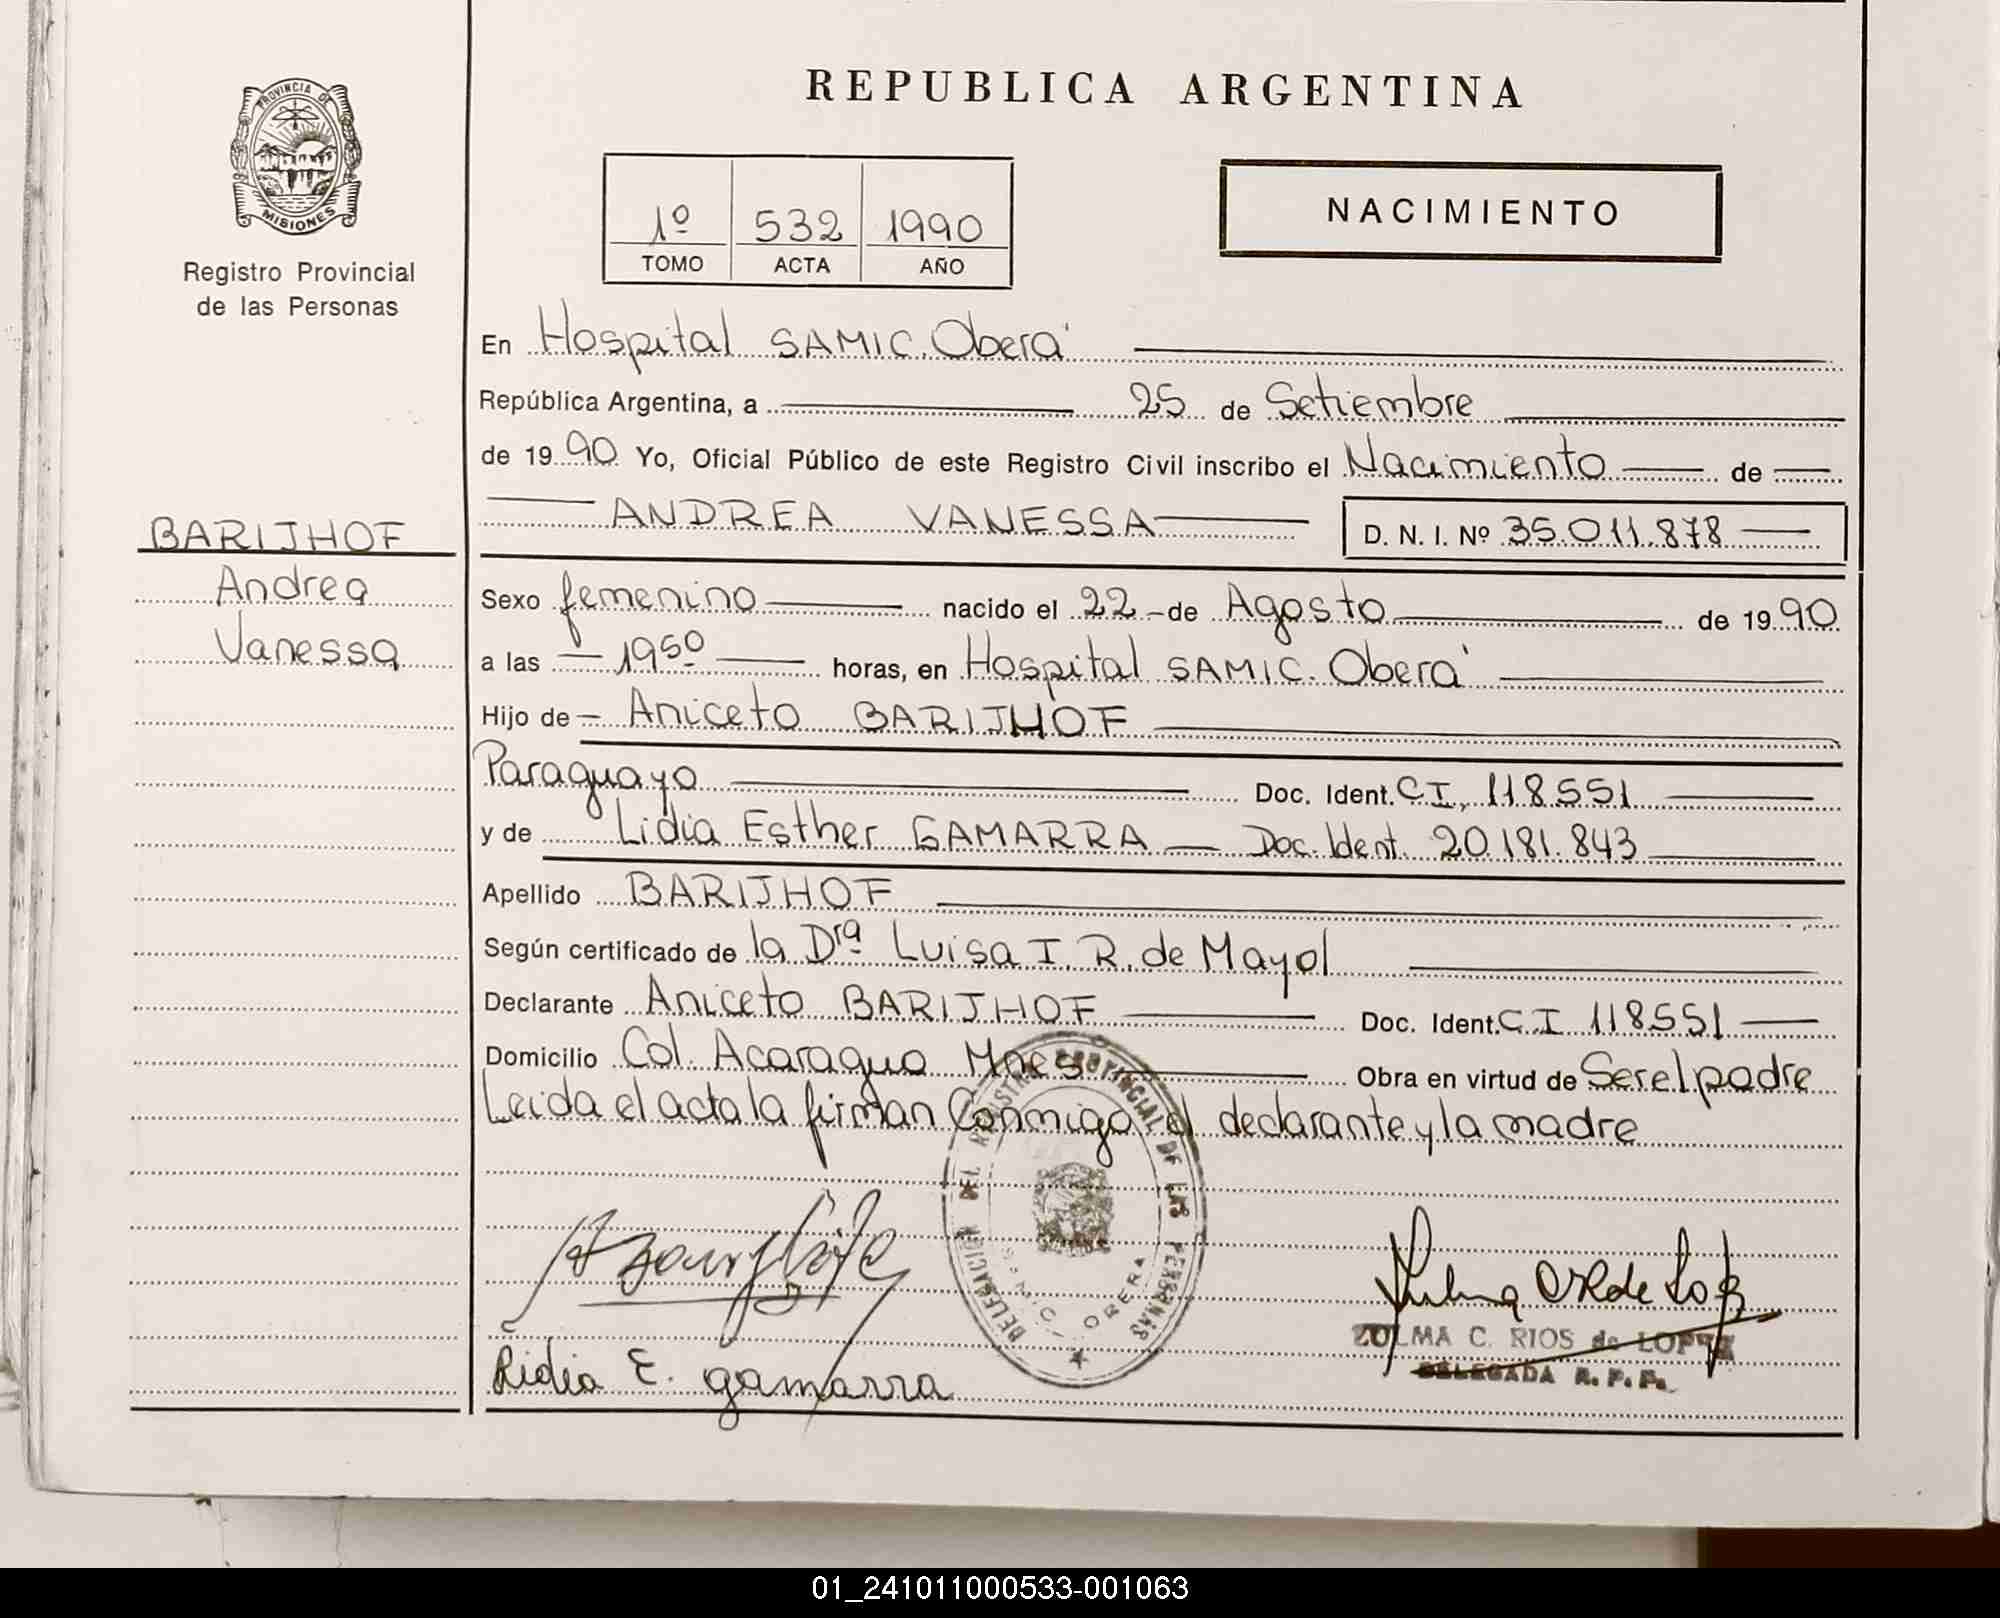 PROVINCIA DE
MISIONES
Registro Provincial
de las Personas
BARIJHOF
Andrea
Vanessa
REPUBLICA ARGENTINA
1º 532 1990
TOMO ACTA AÑO
NACIMIENTO
En Hospital SAMIC. Oberá
República Argentina, a 25 de Setiembre
de 1990 Yo, Oficial Público de este Registro Civil inscribo el Nacimiento de
ANDREA VANESSA D. N. I. Nº 35.011.878
Sexo femenino nacido el 22 - de Agosto de 1990
a las 19 50 horas, en Hospital SAMIC. Oberá
Hijo de - Aniceto BARIJHOF
Paraguayo Doc. Ident. C I, 118551
y de Lidia Esther GAMARRA Doc. Ident. 20.181.843
Apellido BARIJHOF
Según certificado de la Dra Luisa I. R. de Mayol
Declarante Aniceto BARIJHOF Doc. Ident. C.I 118551
Domicilio Col. Acaragua Mnes Obra en virtud de Ser el padre
Leida el acta la firman Conmigo el declarante y la madre
DELEGACION DEL REGISTRO PROVINCIAL DE LAS PERSONAS
SAMIC OBERA
Lidia E. gamarra
ZULMA C. RIOS de LOPEZ
DELEGADA R. P. P.
01_241011000533-001063